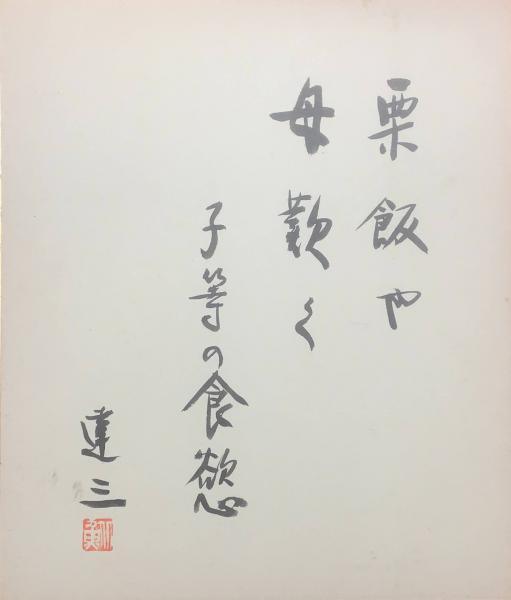 栗飯や
母歎く
子等の食慾
達三